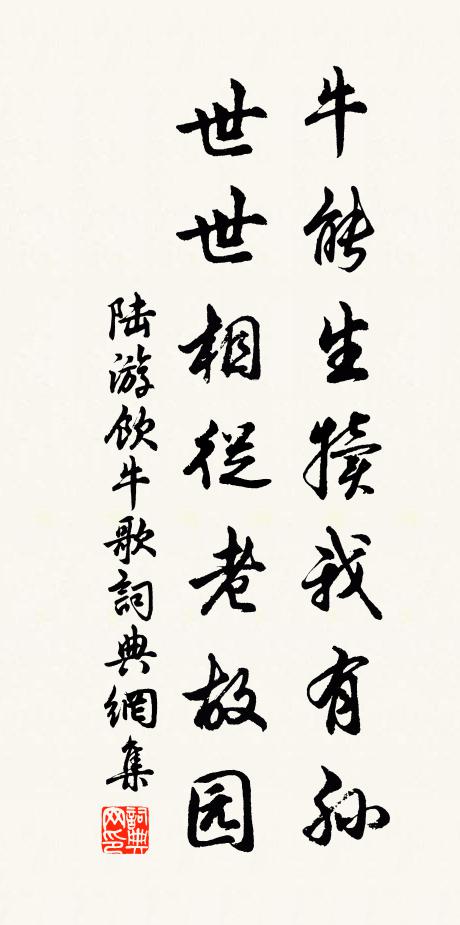 牛能生犊我有孙
世世相從老故园
陆游饮牛歌詞典網集
詞典网印